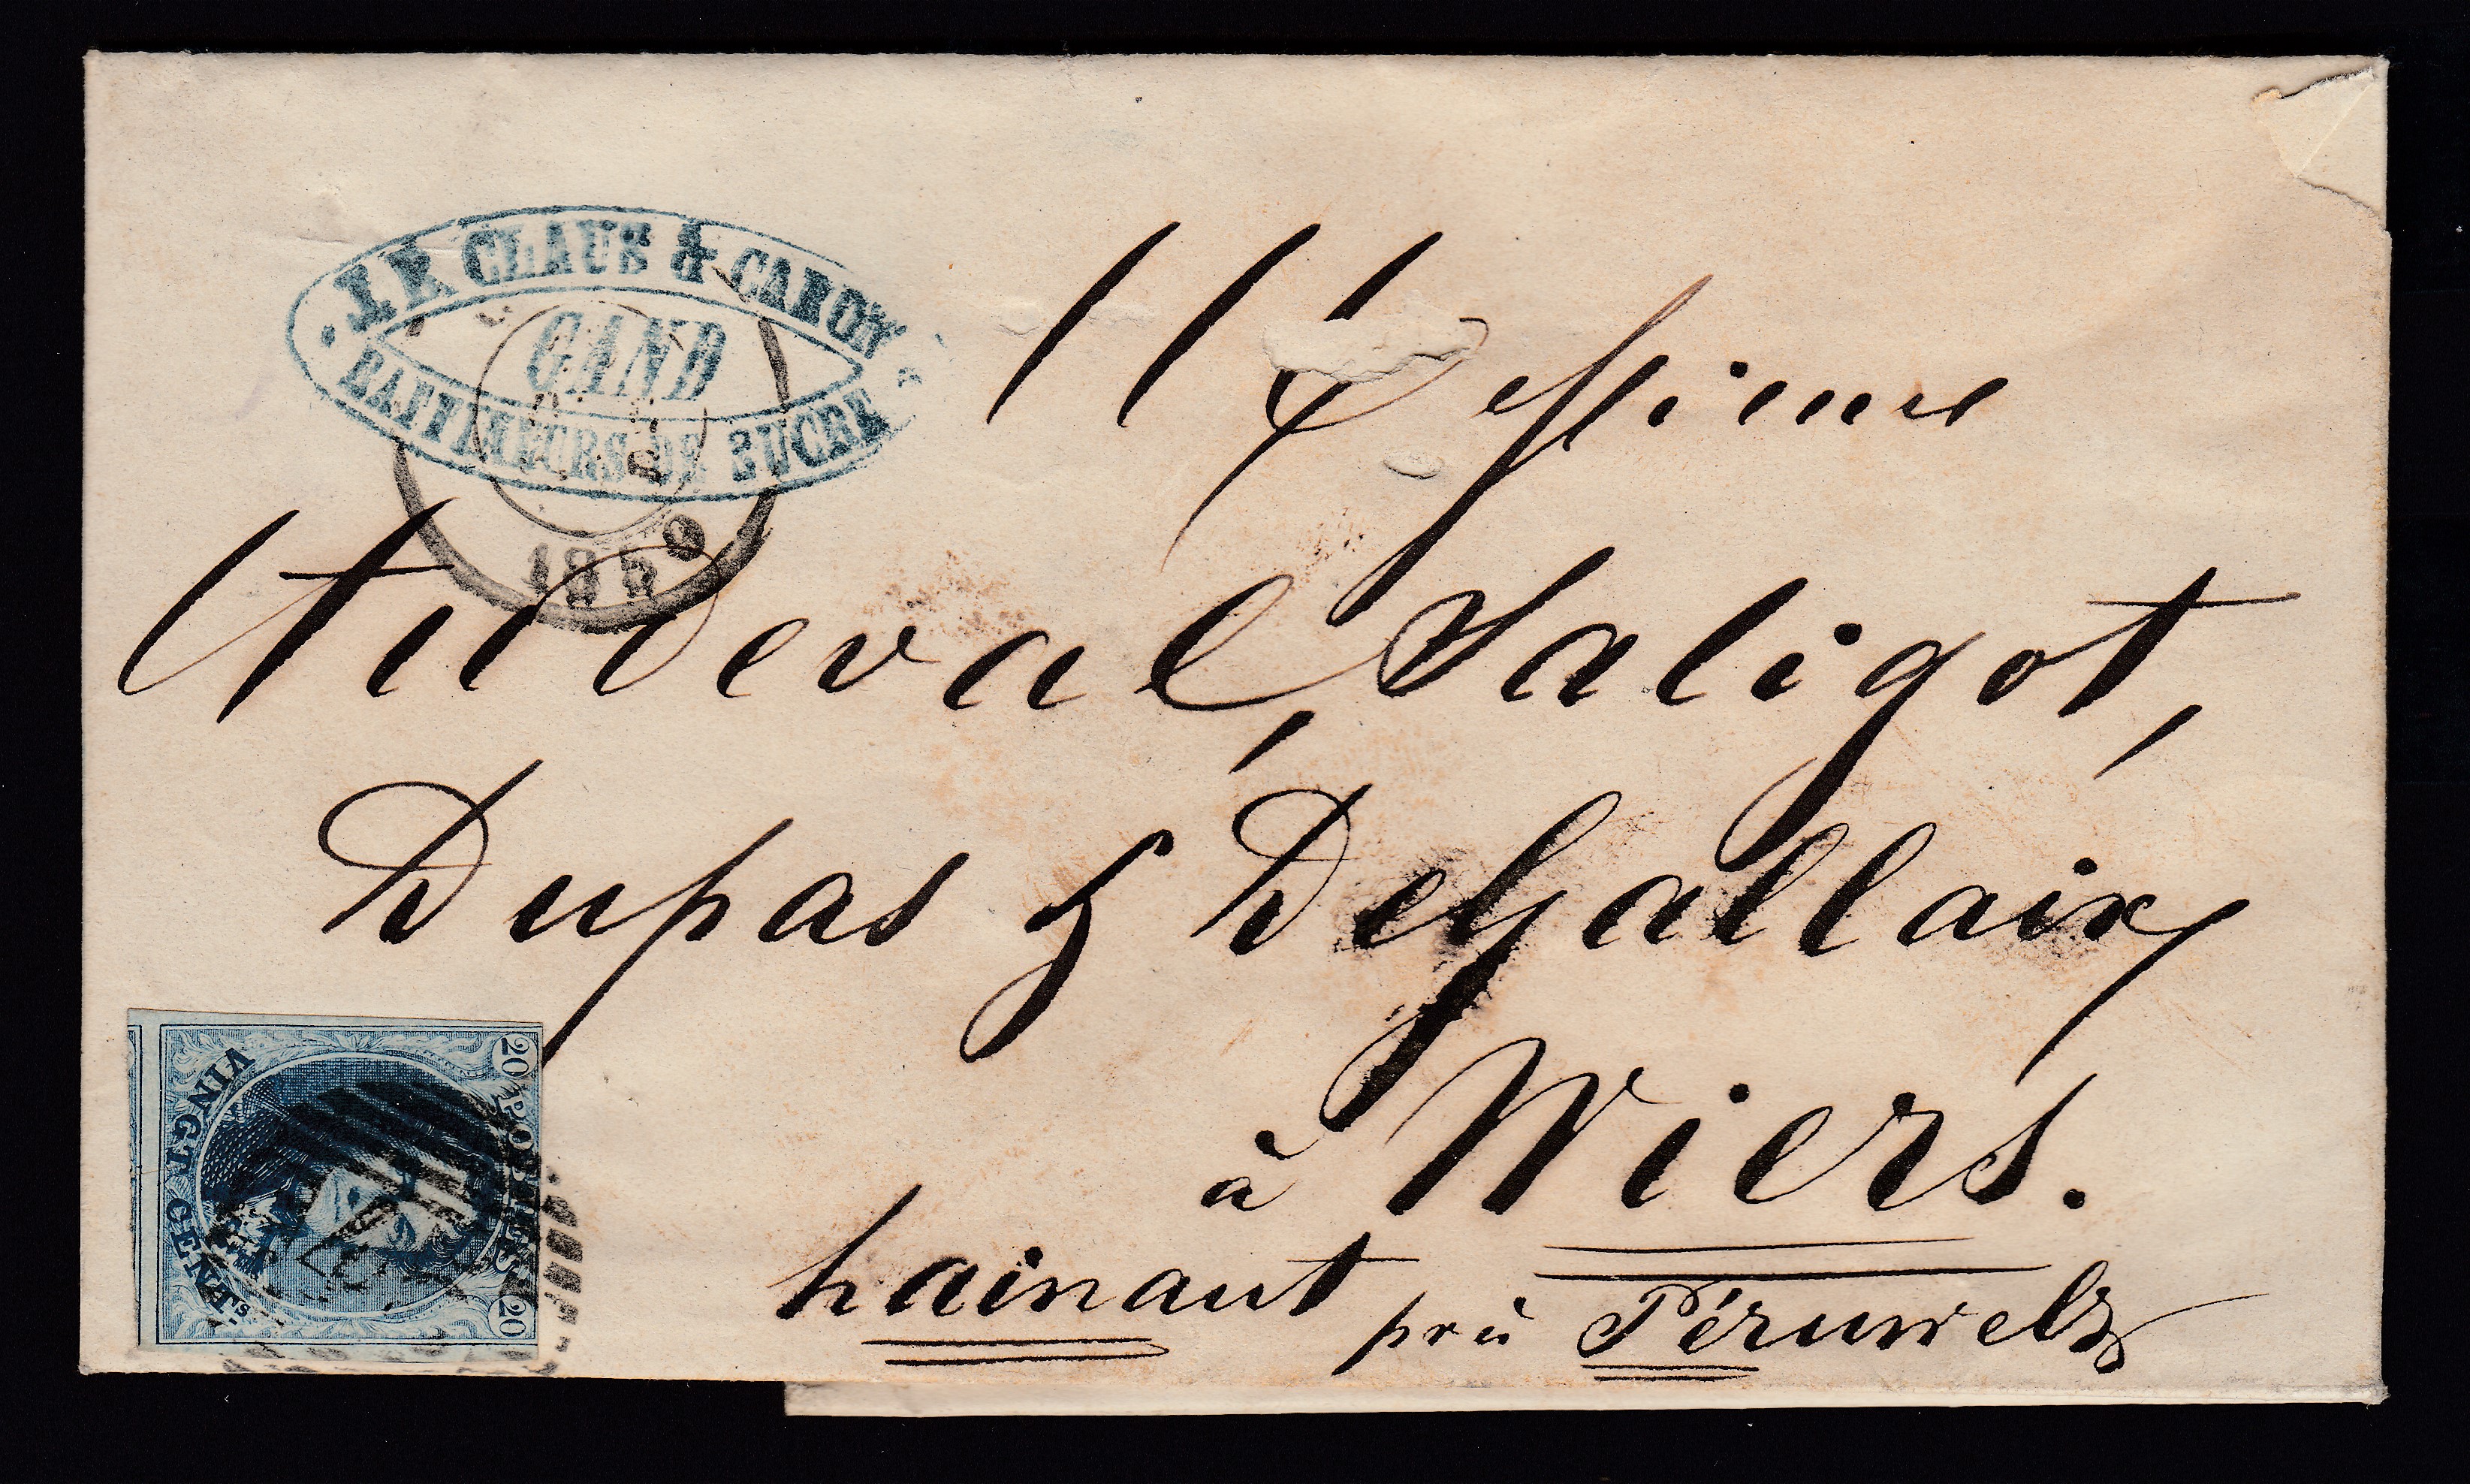 J. F. CLAUS & CARON
GAND
RAFFINEURS DE SUCRE
1859
Messieurs
Audeval, Saligot,
Dupas & DeGallaix
à Wiers.
hainaut près Péruwelz
20 POSTES 20
VINGT CENTs.